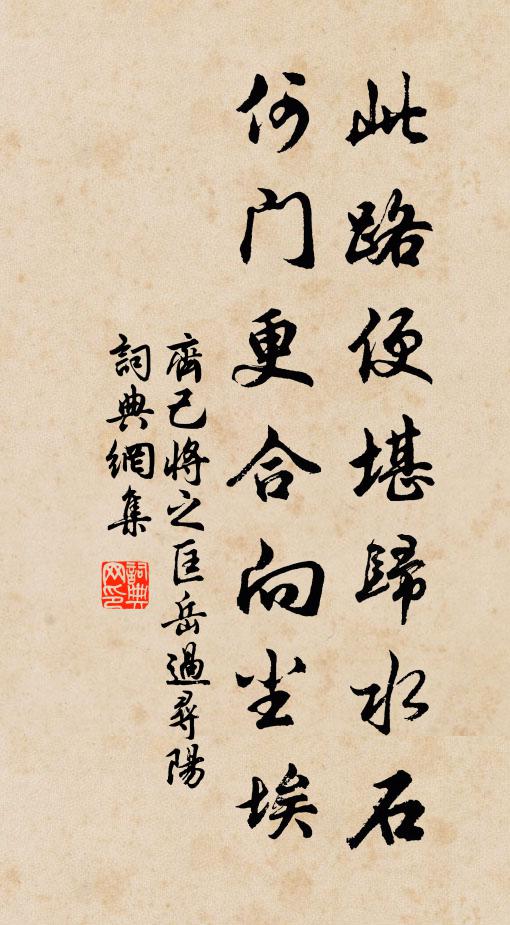 此路便堪歸水石
何門更合向尘埃
齊己將之匡岳過尋陽
詞典網集
詞典网印